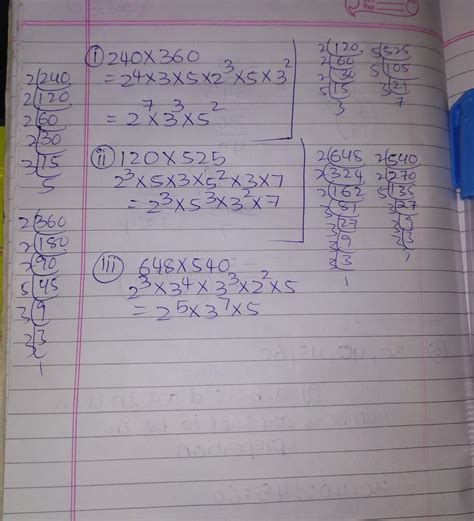 i) 240×360
= 2⁴×3×5×2³×5×3²
= 2⁷×3³×5²
ii) 120×525
2³×5×3×5²×3×7
= 2³×5³×3²×7
iii) 648×540
2³×3⁴×3³×2²×5
= 2⁵×3⁷×5
2|240
2|120
2|60
2|30
3|15
5
2|360
2|180
2|90
5|45
3|9
3
1
2|120
2|60
2|30
5|15
3
5|525
5|105
3|21
7
2|648
2|324
2|162
3|81
3|27
3|9
3|3
1
2|540
2|270
5|135
3|27
3|9
3|3
1